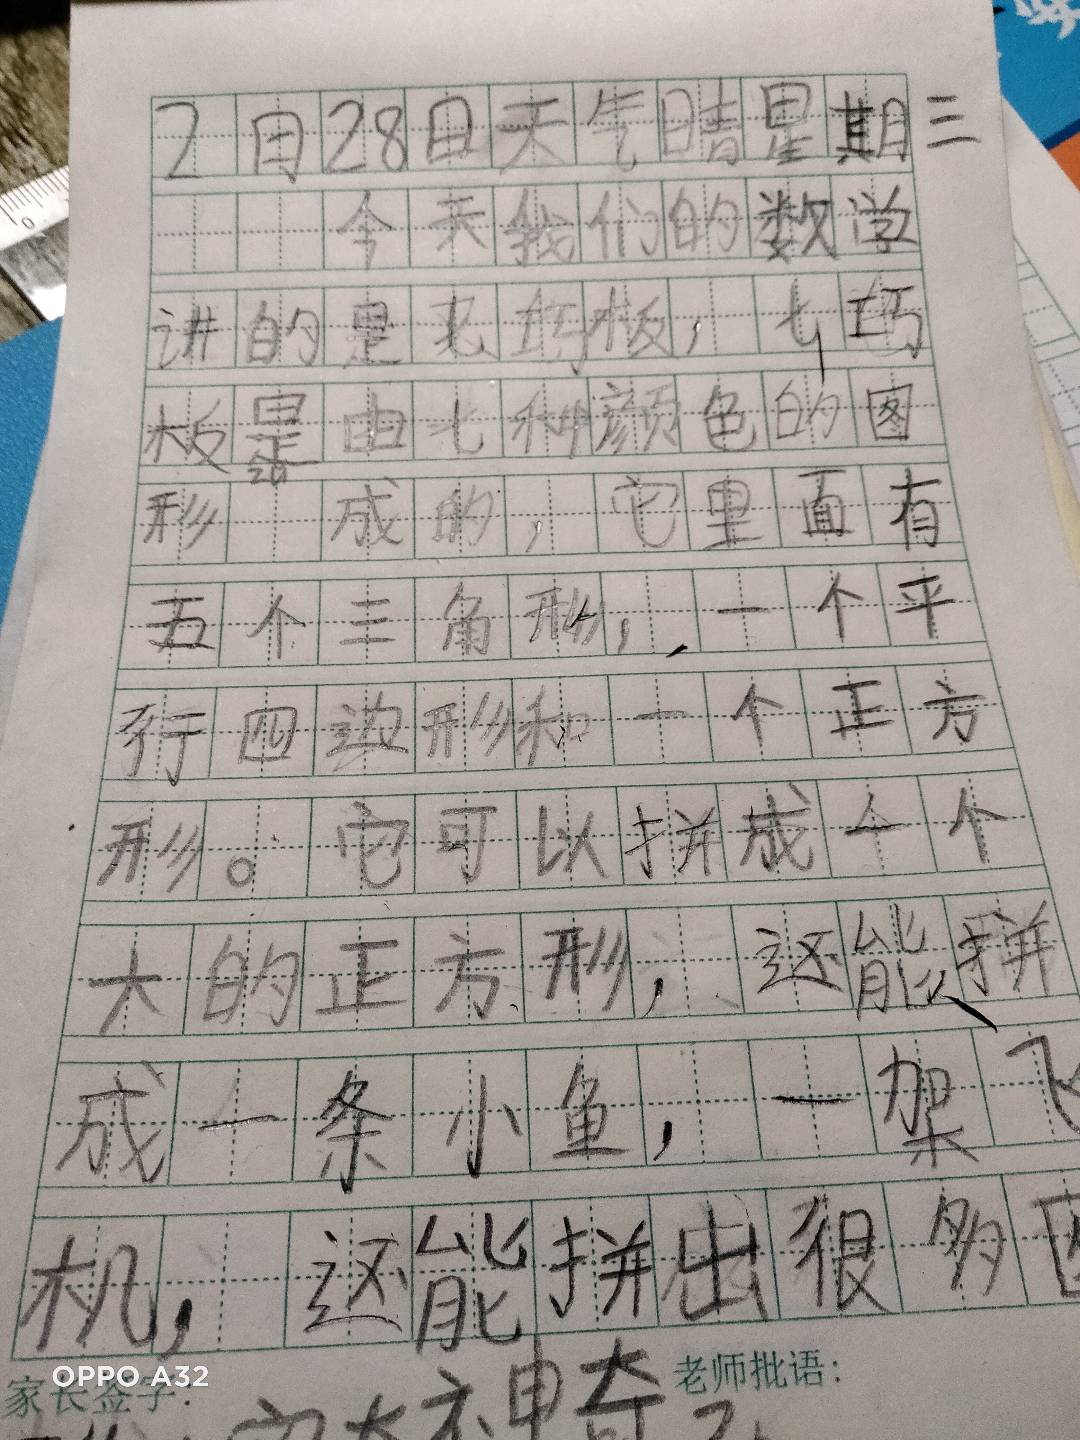 2月28日天气晴星期三
今天我们的数学
讲的是七巧板，七巧
板是由七种颜色的图
形 成的，它里面有
五个三角形，一个平
行四边形和一个正方
形。它可以拼成一个
大的正方形，还能拼
成一条小鱼，一架飞
机，还能拼出很多
家长签字：
老师批语：
神奇
OPPO A32